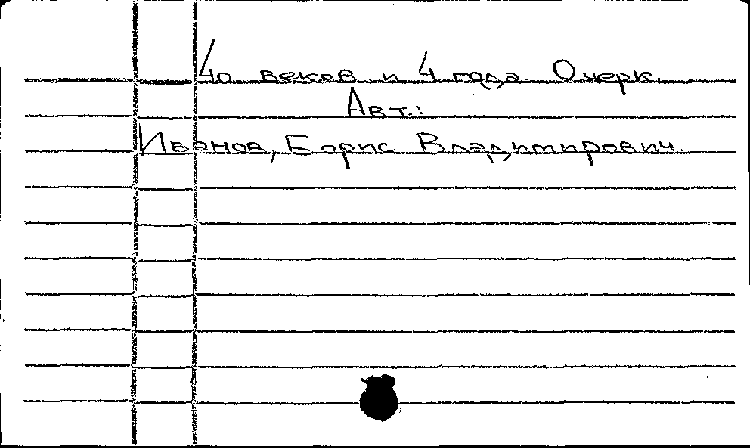 40 веков и 4 года. Очерк.
Авт.:
Иванов, Борис Владимирович.